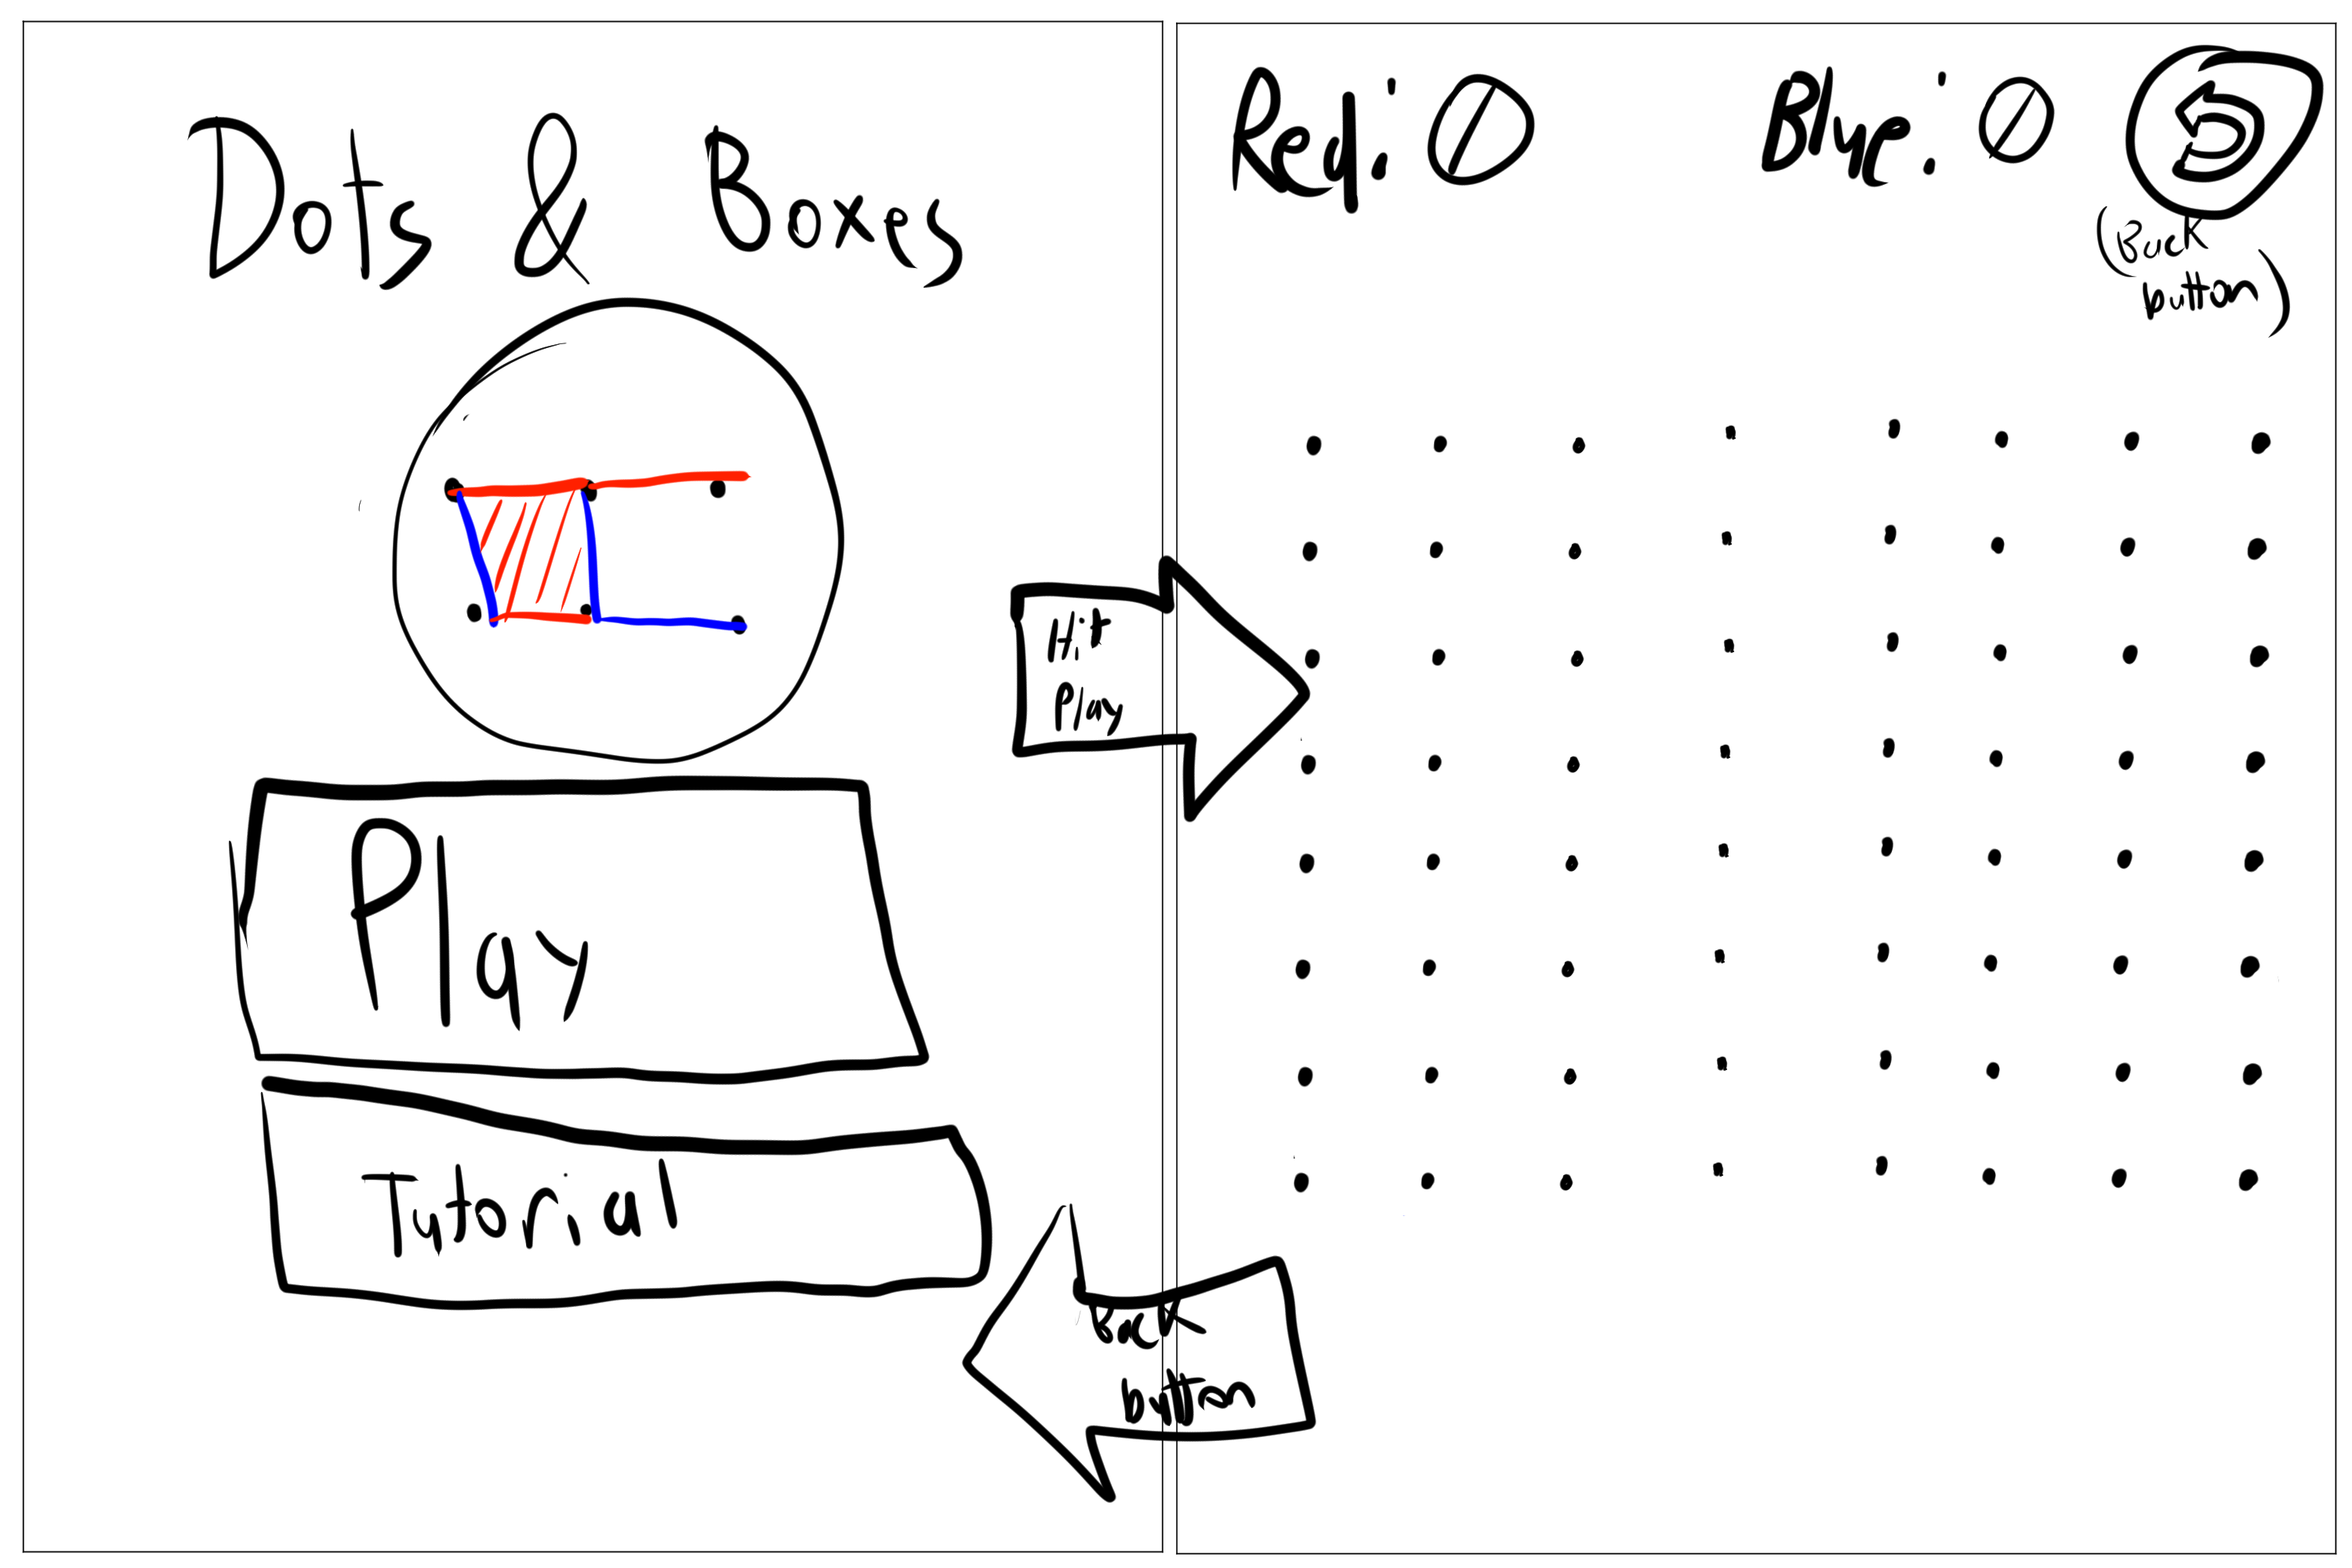 Dots & Boxes
Play
Tutorial
Hit
Play
Back
button
Red: 0 Blue: 0
(Back
button)